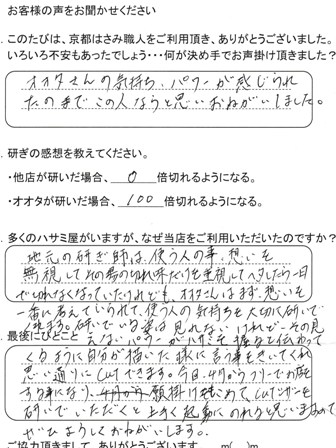 お客様の声をお聞かせください
.このたびは、京都はさみ職人をご利用頂き、ありがとうございました。
いろいろ不安もあったでしょう・・・何が決め手でお声掛け頂きました?
オオタさんの気持ち、パワーが感じられ
たのでこの人ならと思いおねがいしました。
.研ぎの感想を教えてください。
・他店が研いだ場合、 0 倍切れるようになる。
・オオタが研いだ場合、100倍切れるようになる。
.多くのハサミ屋がいますが、なぜ当店をご利用いただいたのですか?
地元の研ぎ師は、使う人の事、想いを
無視してその場の切れ味だけを重視してヘタしたら一日
で切れなくなっていたけれども、オオタさんはまず、想いを
一番に考えていられて、使う人の気持ちを大切に研いで
くれます。研いでいる姿は見れないけれど、その見
.最後にひとこと えないパワーがハサミを握ると伝わって
くるように自分が描いた様に言う事をきいてくれ
思い通りにCutできます。今日、4月からフリーでお店を
する事になり、願掛けも込めて、Cutシザーを
研いでいただくと上手く起動にのれると思いますので
ぜひよろしくおねがいします。
ご協力頂きまして、ありがとうございます。 m(__)m